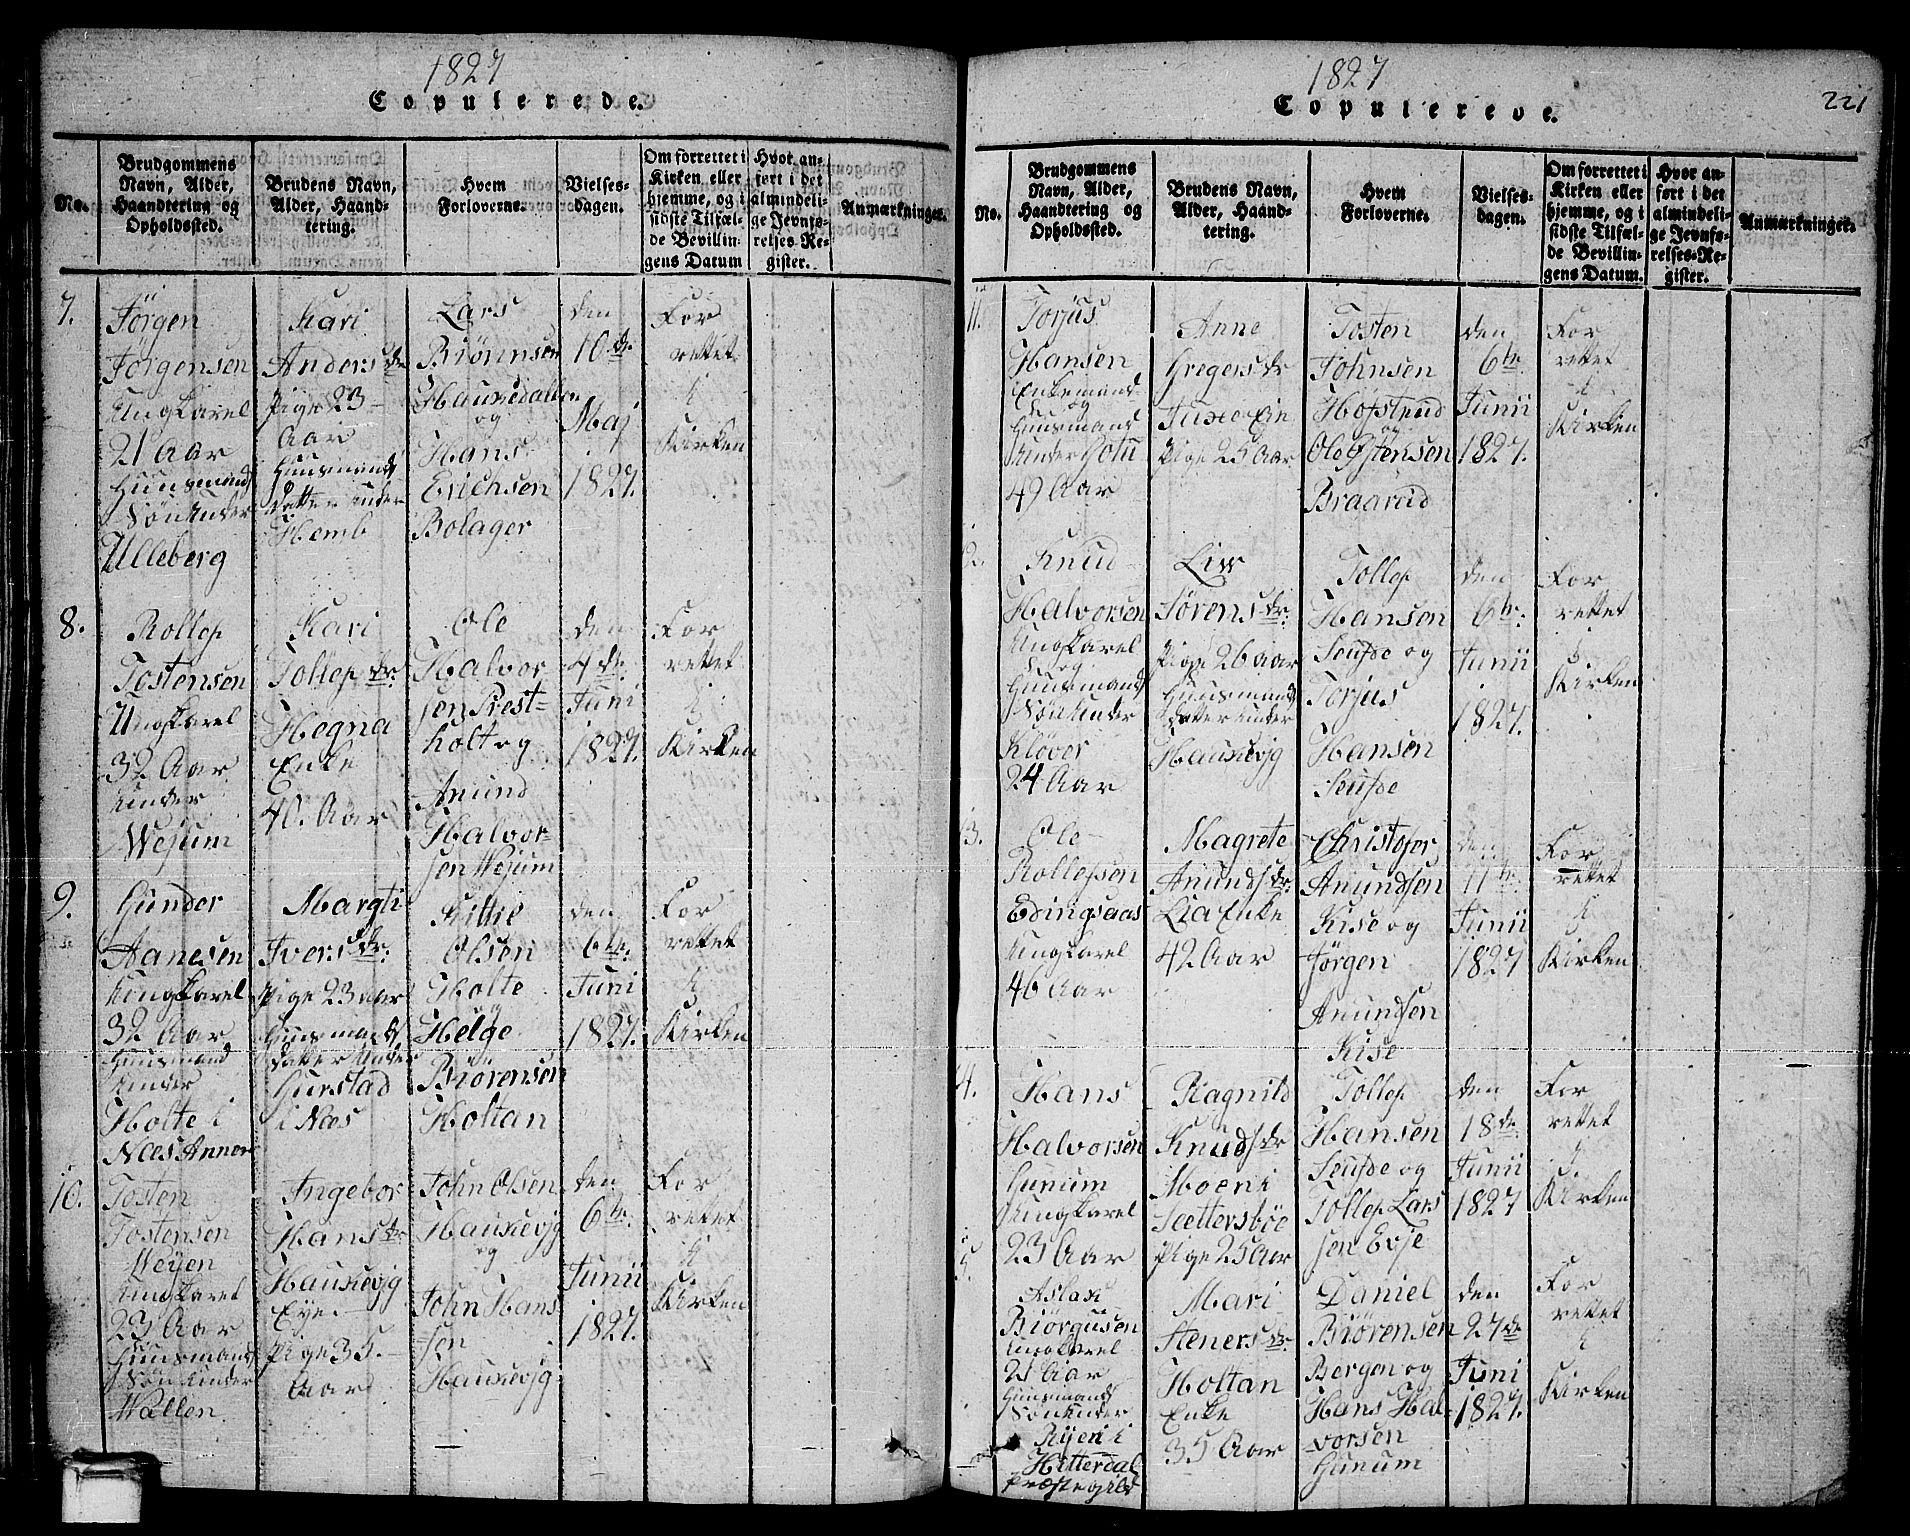 1827
Copulerede.
No.
Brudgommens
Navn, Alder,
Haandtering og
Opholdssted.
Brudens Navn,
Alder, Haand-
tering.
Hvem
Forloverne.
Vielses-
dagen.
Om forrettet i
Kirken eller
hjemme, og i
sidste Tilfæl-
de Bevillin-
gens Datum
Hvor an-
ført i det
almindeli-
ge Jevnfø-
relses-Re-
gister.
Anmærkninger.
7.
Jørgen
Jørgensen
Ungkarel
21 Aar
Huusmands
Søn Under
Ulleberg
Kari
Andersdr
Pige 23
Aar
Huusmands
Datter under
Hemb
Lars
Biønnsen
Hauxedallen
og
Hans
Erichsen
Bolager
den
10de
Maj
1827.
For
rettet
i
Kirken
8.
Rollef
Tostensen
Ungkarel
32 Aar
Under
Wejum
Kari
Tollefdr.
Hegna
Enke
40. Aar
Ole
Halvor
sen Prest-
holt og
Anund
Halvor-
sen Wejum
den
4de
Juni
1827.
For
rettet
i
Kirken
9.
Gunder
Aanesen
Ungkarel
32 Aar
Huusmand
Under
Holte i
Næs Annex
Margti
Iversdr:
Pige 23 aar
Huusmands
Datter Under
Gurstad
i Næs
Kittil
Olsen
Holte
og
Helge
Biørensen
Holtan
den
6te:
Juni
1827.
For
rettet
i
Kirken
10.
Tosten
Tostensen
Weyen
Ungkarel
23 Aar
Huusmands
Søn Under
Wallen
Ingebor
Hansdr
Hauxevjg
Eye.
Pige 35.
Aar
John Olsen
Hauxevjg
og
John Hans
sen
Hauxevjg
den
6te:
Junii
1827.
For
rettet
i
Kirken
1827
221
Copulerede.
No.
Brudgommens
Navn, Alder,
Haandtering og
Opholdssted.
Brudens Navn,
Alder, Haand-
tering.
Hvem
Forloverne.
Vielses-
dagen.
Om forrettet i
Kirken eller
hjemme, og i
sidste Tilfæl-
de Bevillin-
gens Datum.
Hvor an-
ført i det
almindeli-
ge Jevnfø-
relses-Re-
gister.
Anmærkninger.
11.
Torjus
Hansen
Enkemand
og
Huusmand
Under
49 Aar
Anne
Gregersdr
Pige 25 Aar
Tosten
Johnsen
Hofstuud
og
Ole Østensen
Braarud
den
6te:
Junii
1827.
For
rettet
i
Kirken
2.
Knud
Halvorsen
Ungkarel
og
Huusmands
Søn Under
Kløver
24 Aar
Liw
Sørensdr:
Pige 26 aar
Huusmands
Datter Under
Hauxevjg
Tollef
Hansen
Seufde og
Torjus
Hansen
Seufde
den
6te:
Junii
1827.
For
rettet
i
Kirken
3.
Ole
Rollefsen
Edingsaas
Ungkarel
46 Aar
Magrete
Anundsdr:
Lia Enke
42 Aar
Christofer
Anundsen
Kise og
Jørgen
Anundsen
Kise
den
11te:
Junii
1827
For
rettet
i
Kirken
4.
Hans
Halvorsen
Gunum
Ungkarel
23 Aar
Ragnild
Knudsdr
Moen i
Settersbøe
Pige 25 Aar
Tollef
Hansen
Seufde og
Tollef Lars
sen Evje
den
18de:
Junii
1827
For
rettet
i
Kirken
5.
Aslak
Biørgusen
Ungkarel
21 Aar
Huusmands
Søn Under
Ryen i
Hitterdal
Præstegield
Mari
Stenersdr:
Holtan
Enke
35 Aar
Daniel
Biørensen
Bergen og
Hans Hal-
vorsen
Gunum
den
27de
Juni
1827.
For
rettet
i
Kirken